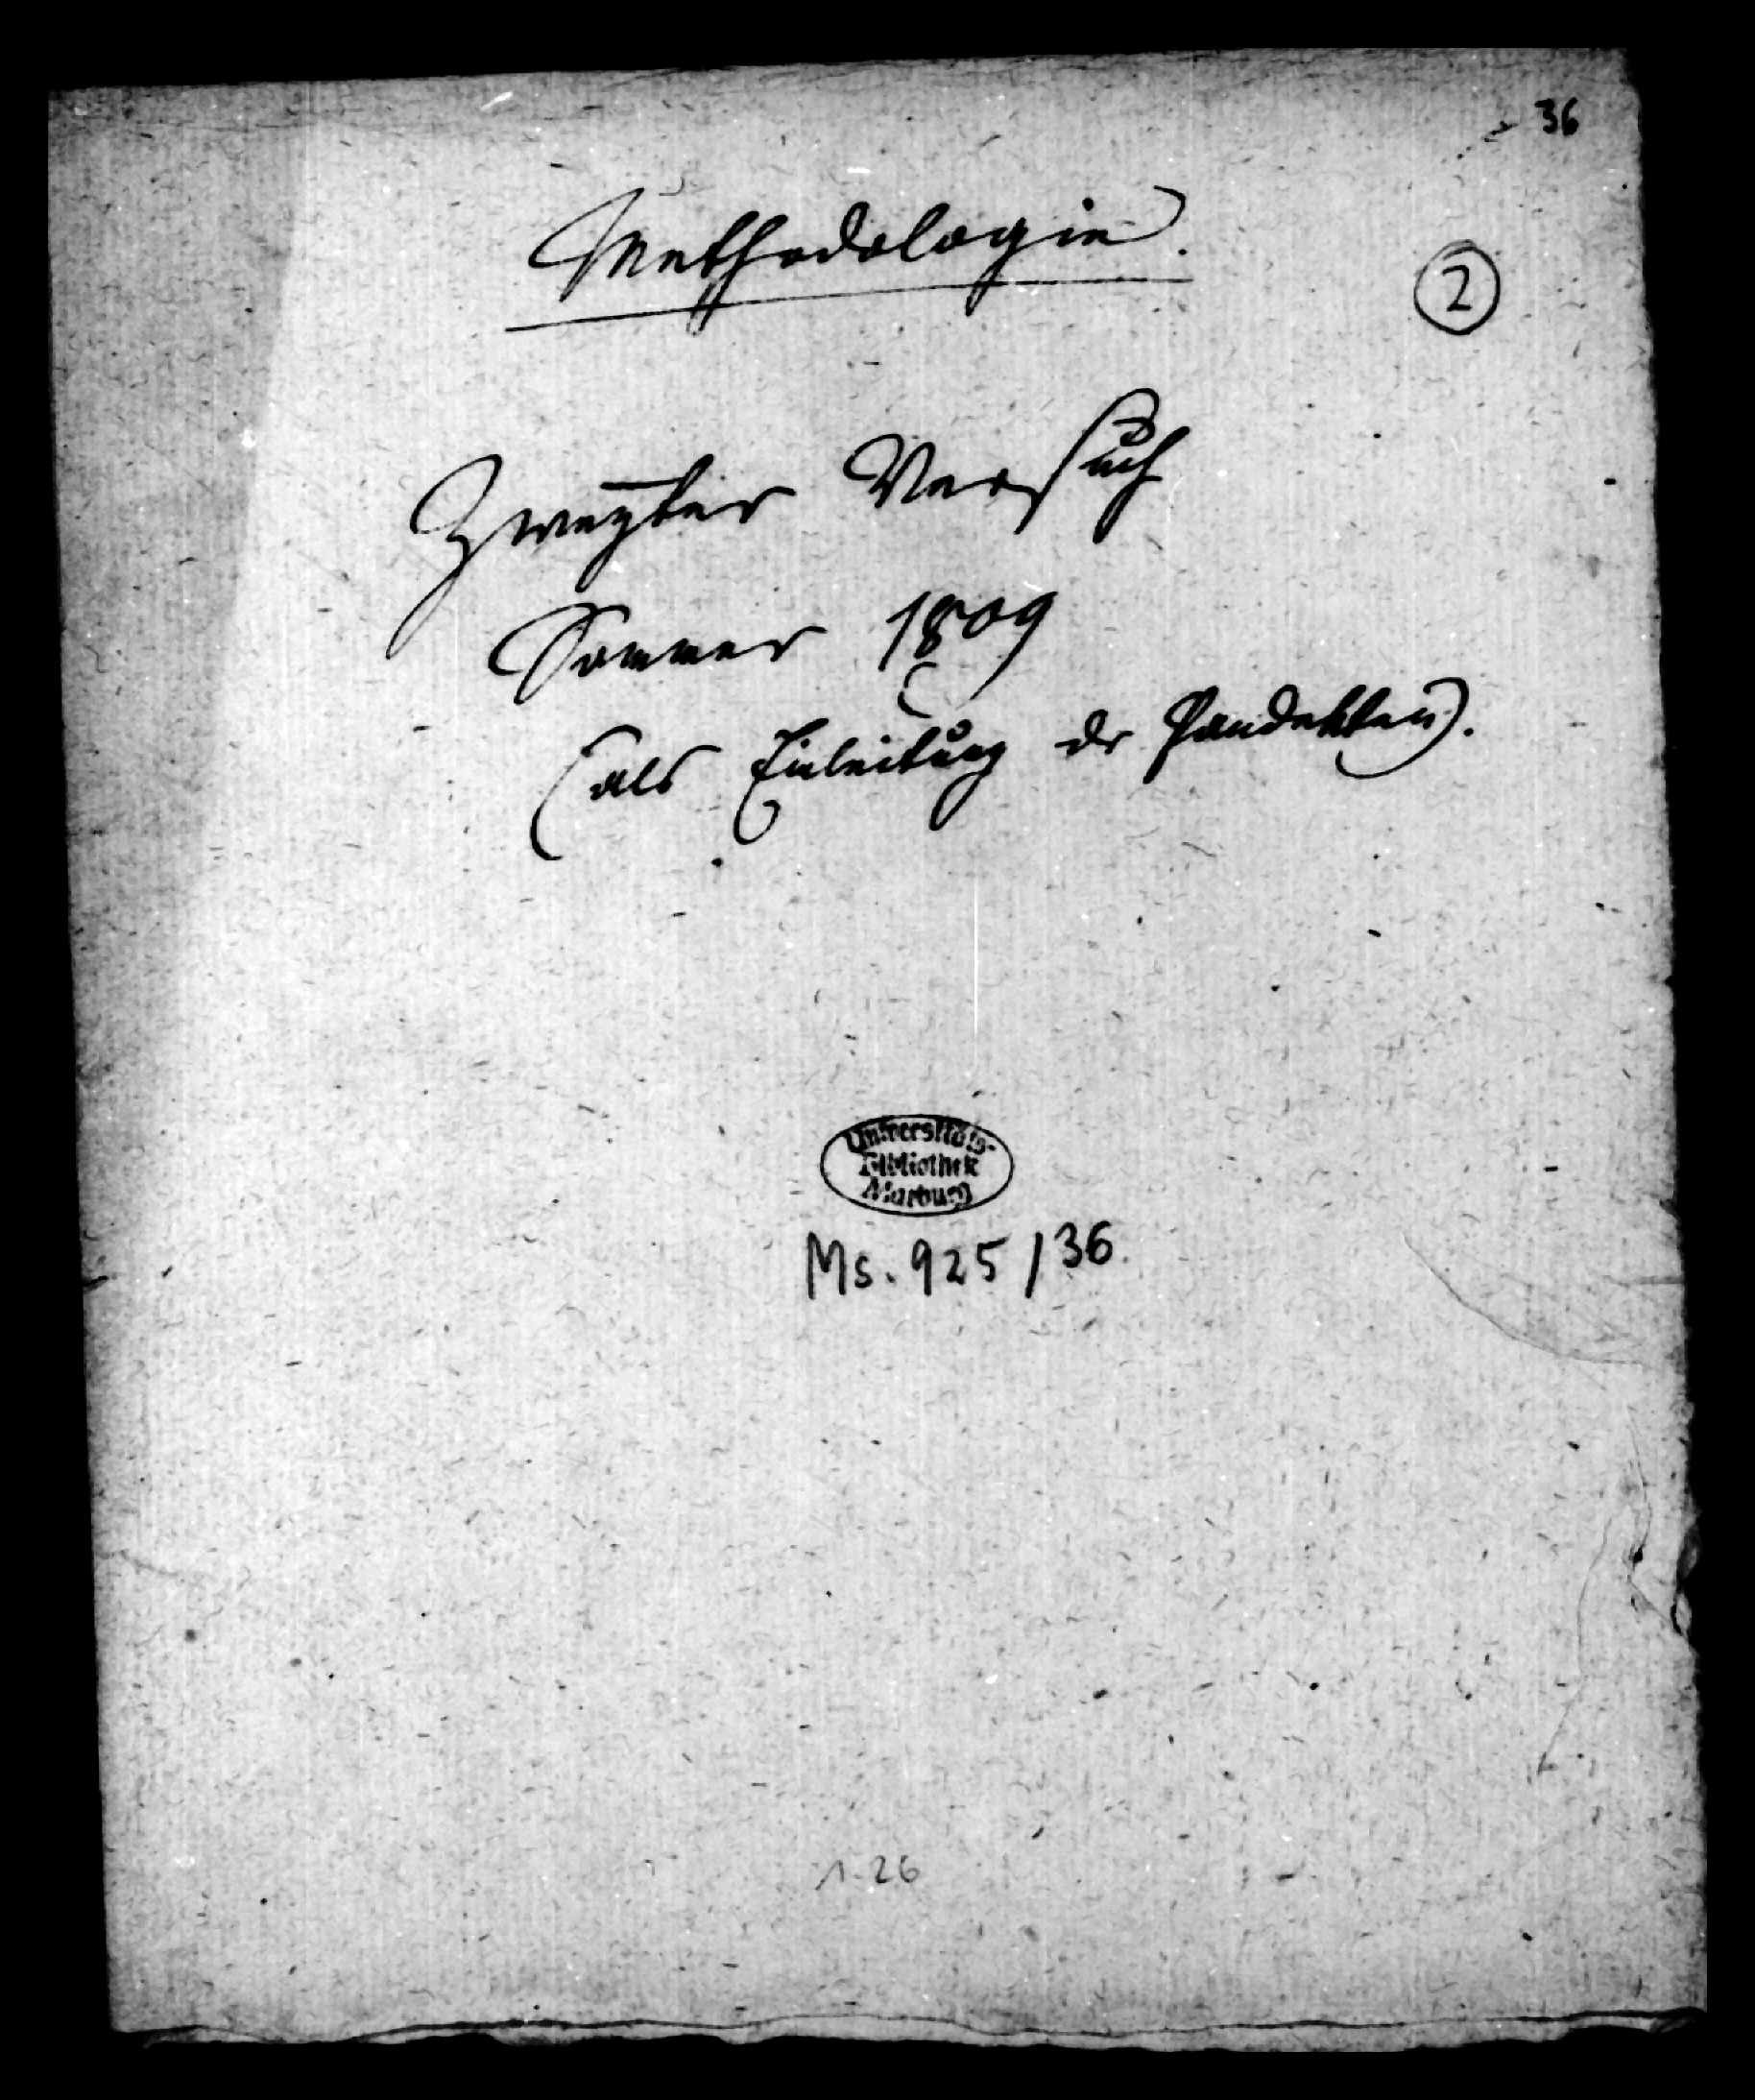 36
Methodologie.
2
Zweyter Versuch
Sommer 1809
(als Einleitung der Pandekten).
Universitäts-
Bibliothek
Marburg
Ms. 925/36
1-26